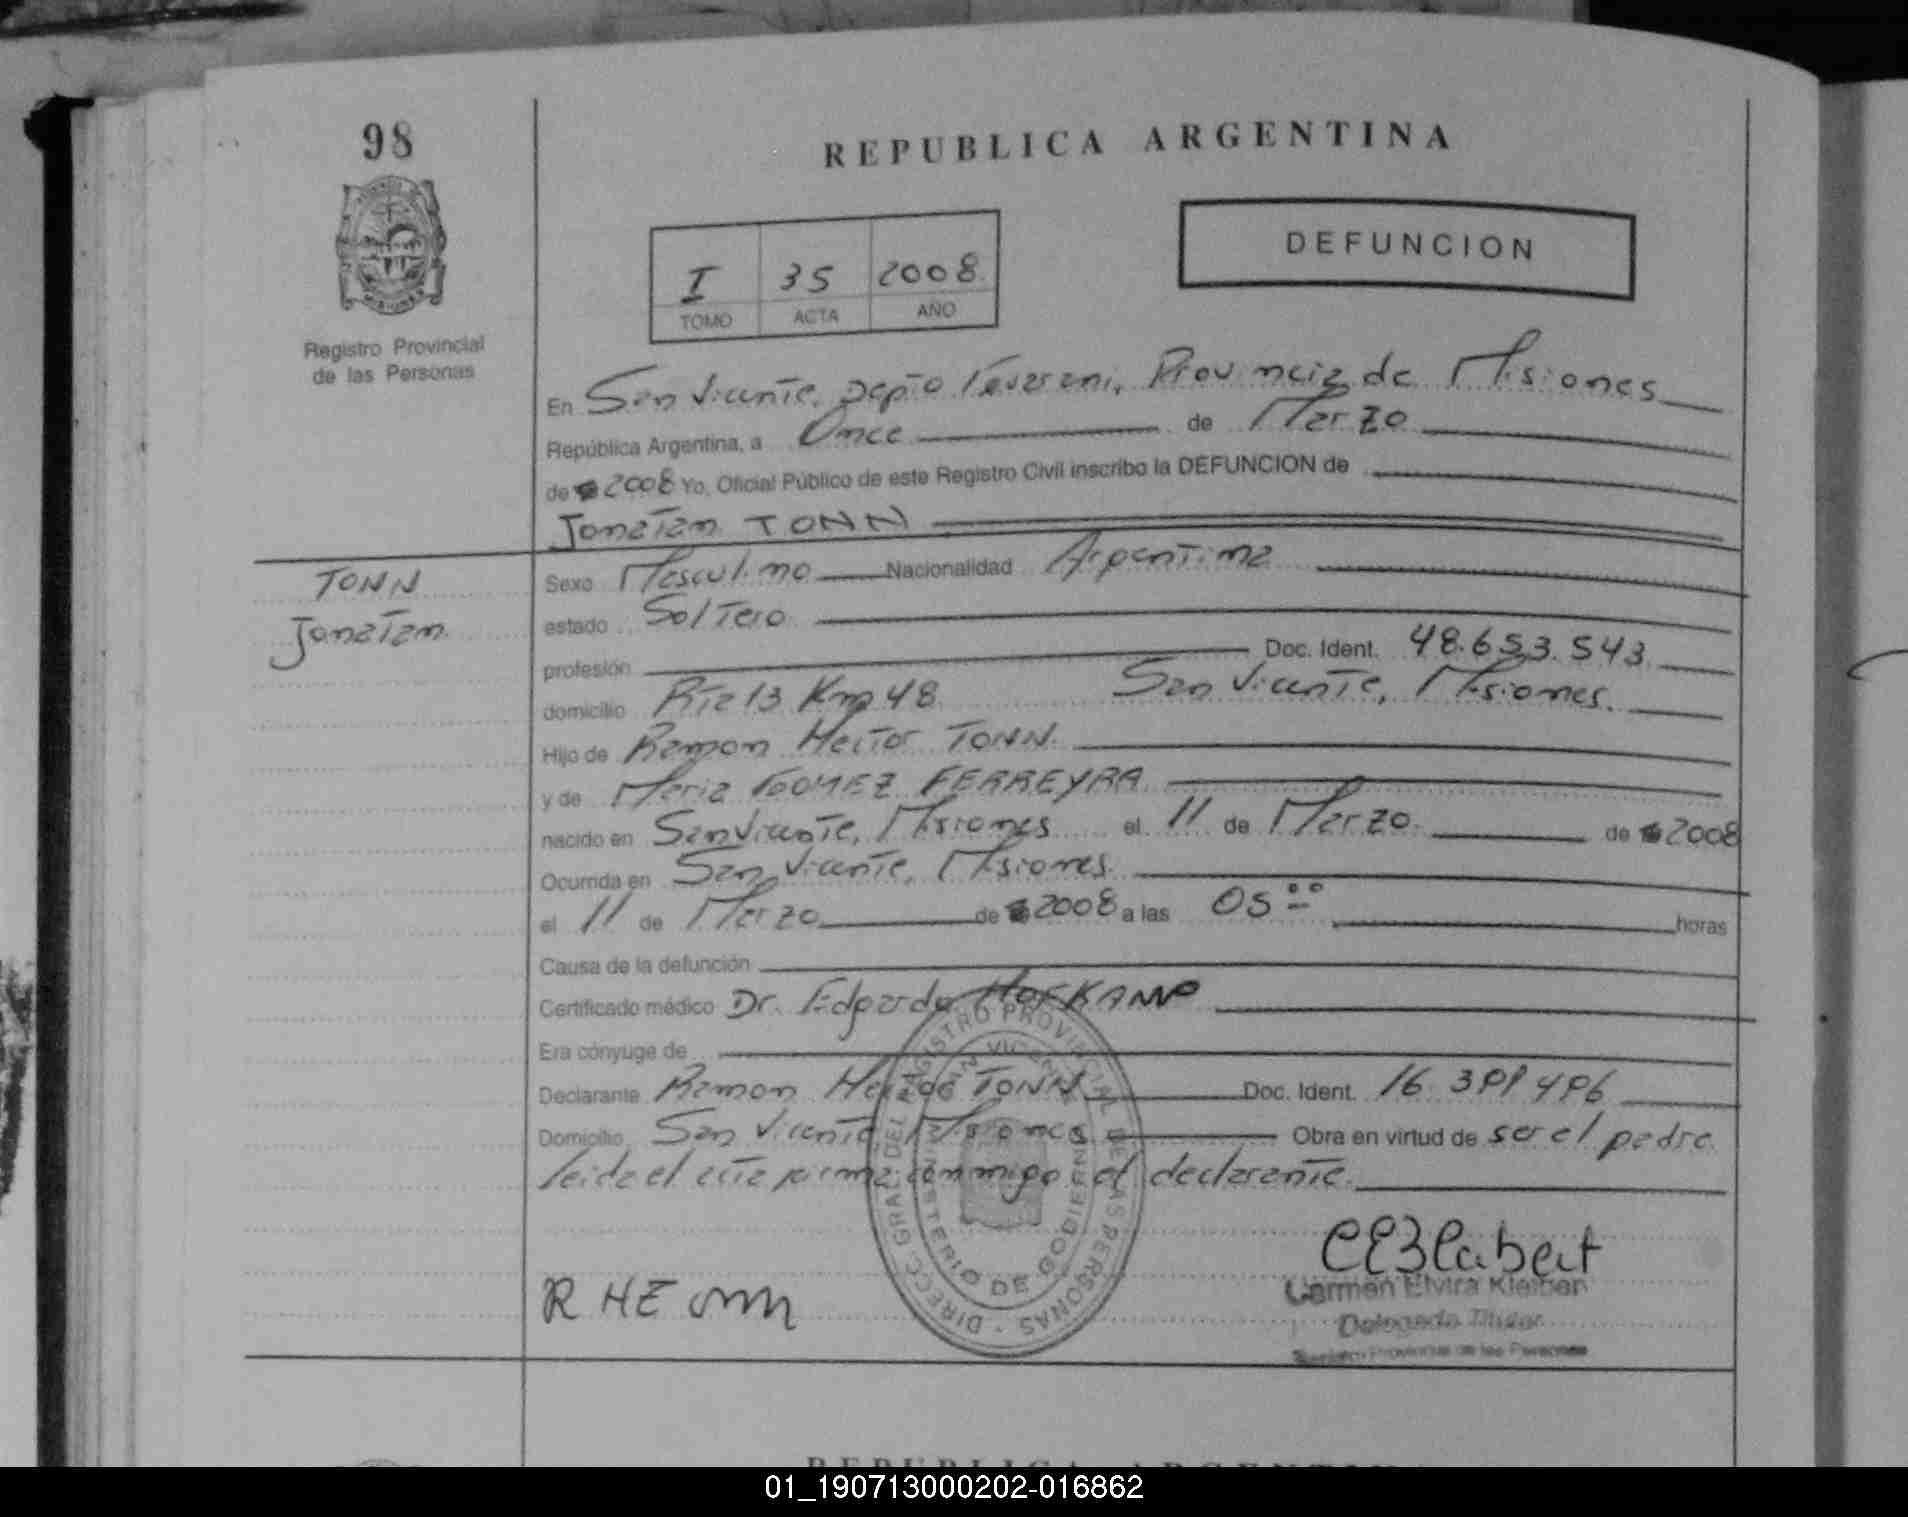 98
REPUBLICA ARGENTINA
DEFUNCION
I 35 2008
TOMO ACTA AÑO
Registro Provincial
de las Personas
En San Vicente, Depto Guarani, Provincia de Misiones
República Argentina, a Once de Marzo
de 2008 Yo, Oficial Público de este Registro Civil inscribo la DEFUNCION de
Jonatan TONN
TONN
Jonatan
Sexo Masculino Nacionalidad Argentina
estado Soltero
profesión Doc. Ident. 48.653.543
domicilio Rta 13 Km 48 San Vicente, Misiones.
Hijo de Ramon Hector TONN
y de Maria GOMEZ FERREYRA
nacido en San Vicente, Misiones el 11 de Marzo de 2008
Ocurrida en San Vicente, Misiones
el 11 de Marzo de 2008 a las 05 00 horas
Causa de la defunción
Certificado médico Dr. Edgardo HOFKAMP
Era cónyuge de
Declarante Ramon Hector TONN Doc. Ident. 16.391496
Domicilio San Vicente Misiones Obra en virtud de ser el padre
leida el acta firma conmigo el declarante.
DIRECC. GRAL. DEL REGISTRO PROVINCIAL DE LAS PERSONAS
SAN VICENTE
MINISTERIO DE GOBIERNO
R HE
Carmen Elvira Kleiber
Delegada Titular
Registro Provincial de las Personas
REPUBLICA ARGENTINA
01_190713000202-016862